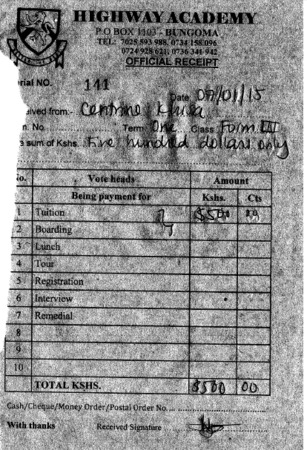 HIGHWAY ACADEMY
P.O BOX 1103 - BUNGOMA
TEL: 0728 593 988, 0734 158 096
0724 928 621, 0736 341 942
OFFICIAL RECEIPT
rial NO. 141
Date 07/01/15
ived from:- Centrine
n. No Term One Class Form III
e sum of Kshs. Five hundred dollars only
No. Vote heads Amount
Being payment for Kshs. Cts
1 Tuition $500 00
2 Boarding
3 Lunch
4 Tour
5 Registration
6 Interview
7 Remedial
8
9
10
TOTAL KSHS. $500 00
Cash/Cheque/Money Order/Postal Order No.
With thanks Received Signature